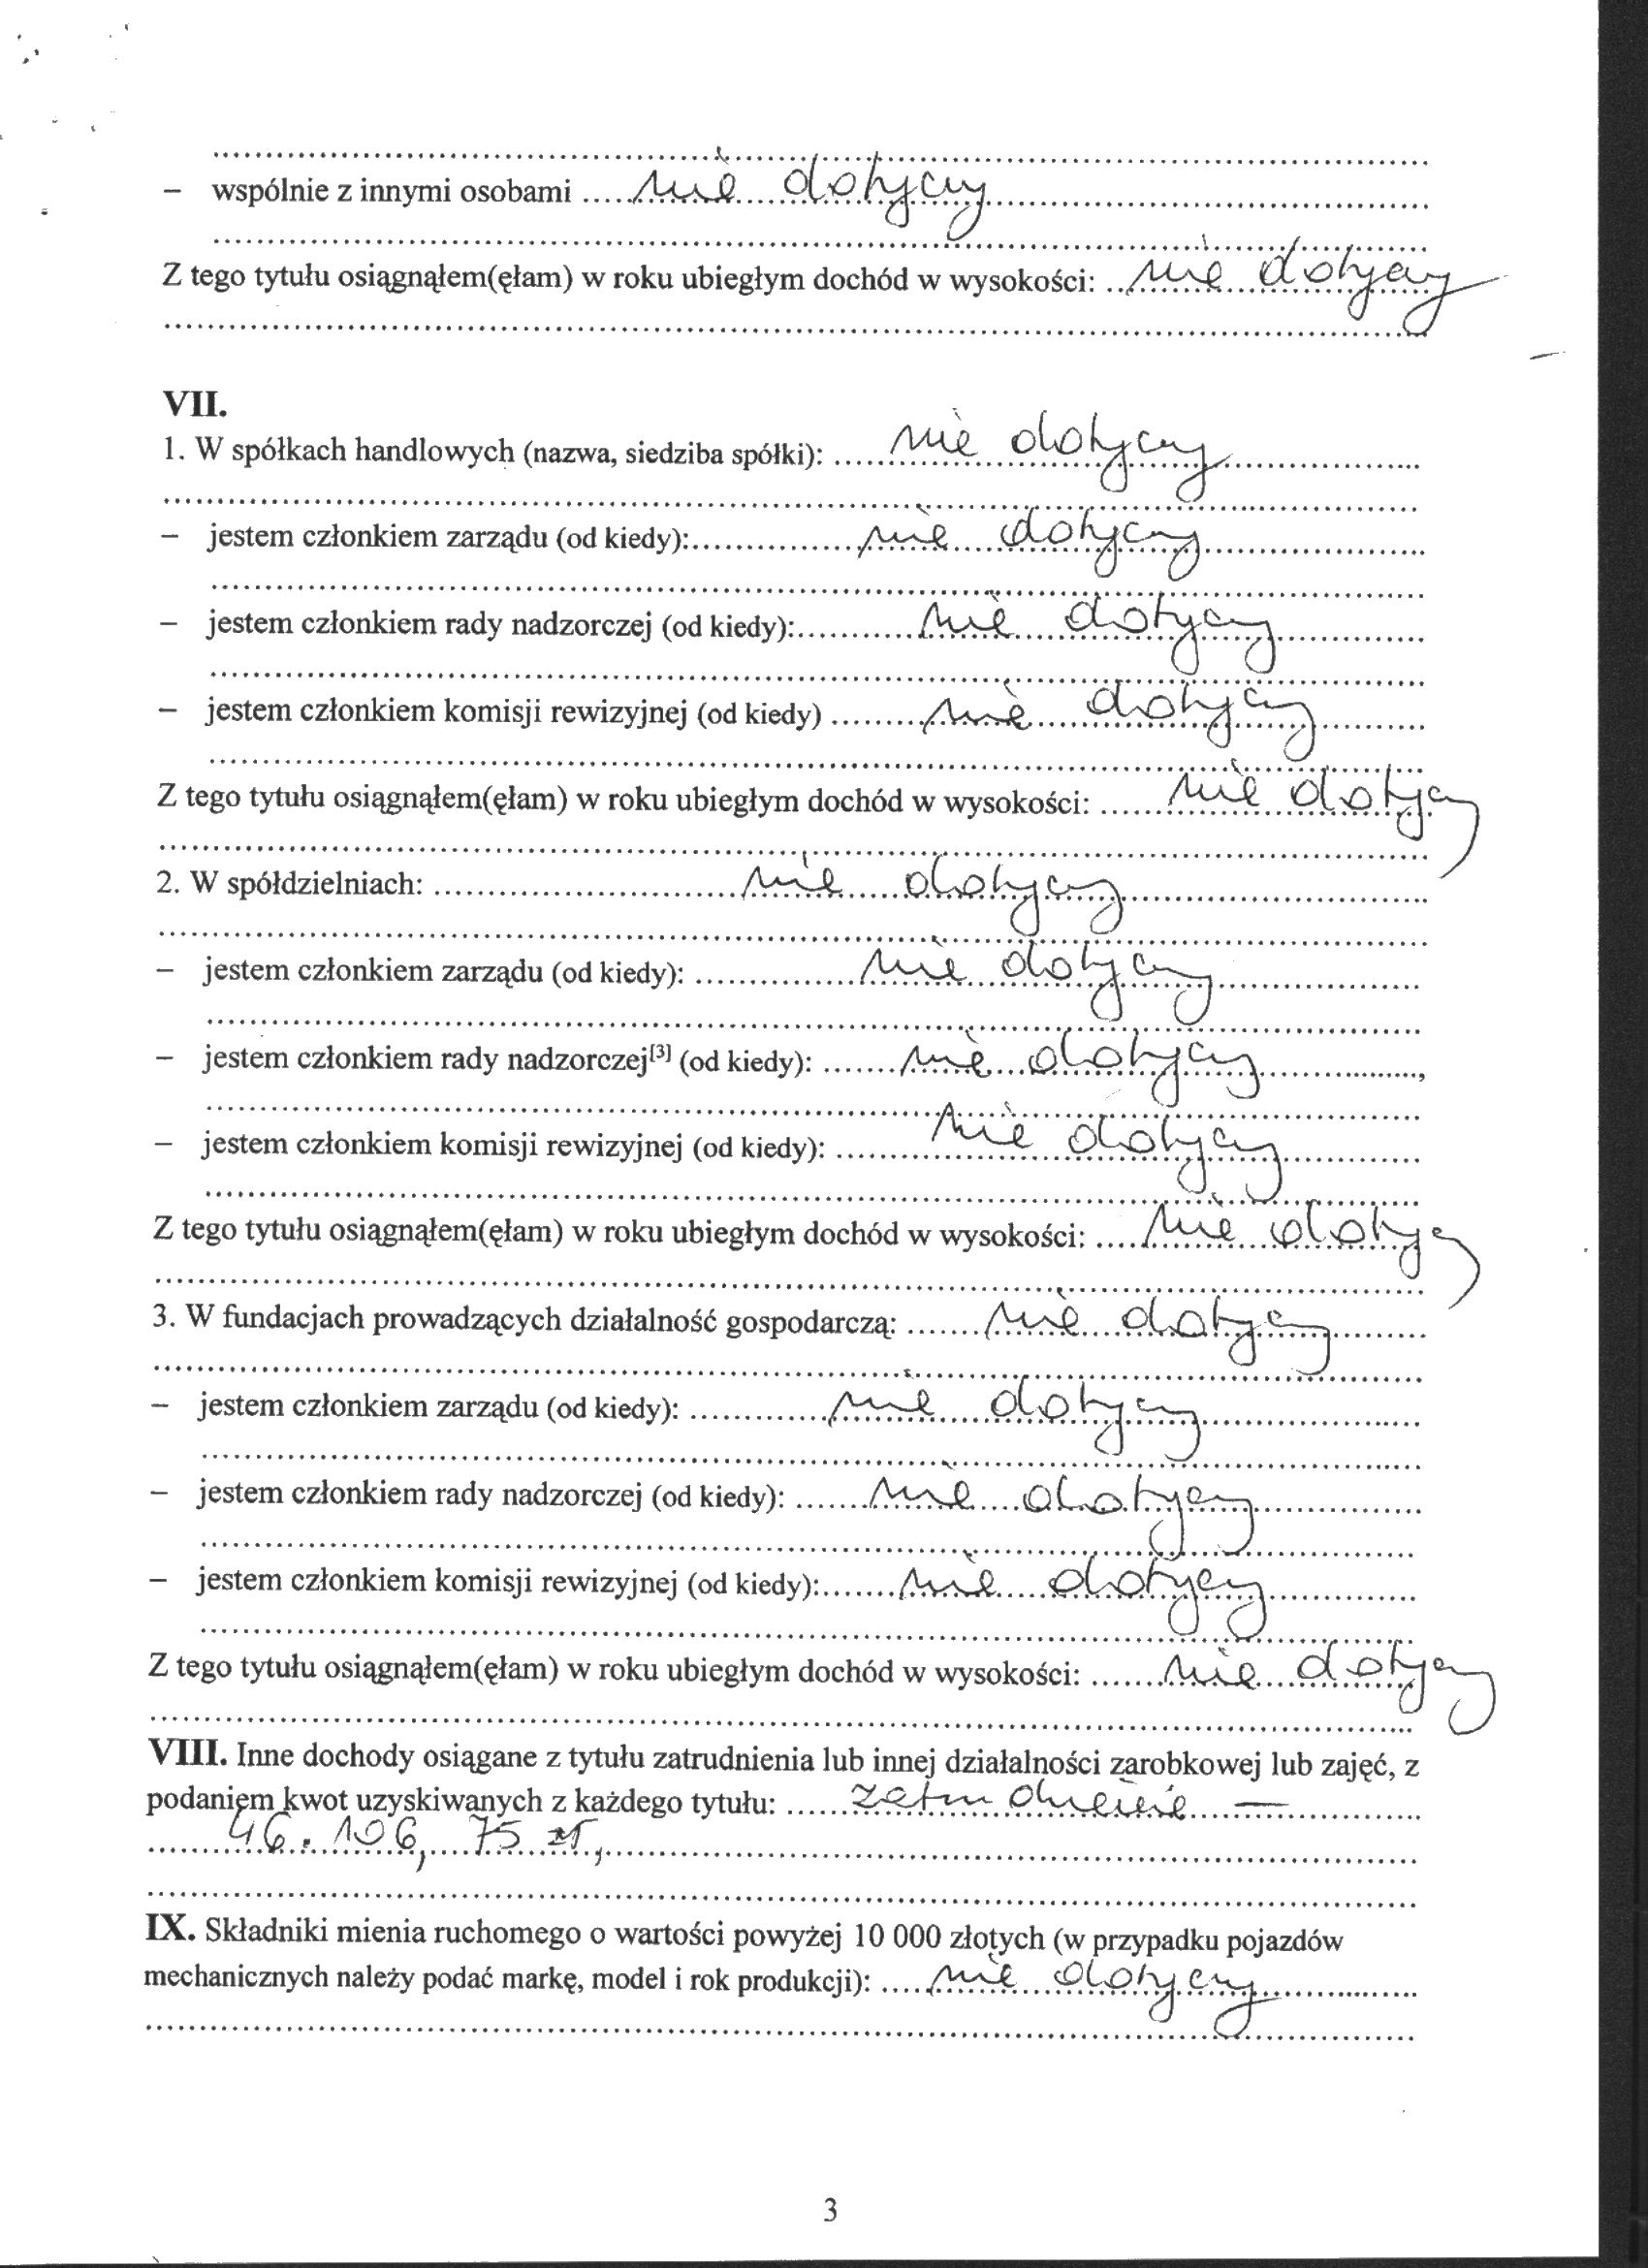 – wspólnie z innymi osobami nie dotyczy
Z tego tytułu osiągnąłem(ęłam) w roku ubiegłym dochód w wysokości: nie dotyczy
VII.
1. W spółkach handlowych (nazwa, siedziba spółki): nie dotyczy
– jestem członkiem zarządu (od kiedy): nie dotyczy
– jestem członkiem rady nadzorczej (od kiedy): nie dotyczy
– jestem członkiem komisji rewizyjnej (od kiedy) nie dotyczy
Z tego tytułu osiągnąłem(ęłam) w roku ubiegłym dochód w wysokości: nie dotyczy
2. W spółdzielniach: nie dotyczy
– jestem członkiem zarządu (od kiedy): nie dotyczy
– jestem członkiem rady nadzorczej[3] (od kiedy): nie dotyczy,
– jestem członkiem komisji rewizyjnej (od kiedy): nie dotyczy
Z tego tytułu osiągnąłem(ęłam) w roku ubiegłym dochód w wysokości: nie dotyczy
3. W fundacjach prowadzących działalność gospodarczą: nie dotyczy
– jestem członkiem zarządu (od kiedy): nie dotyczy
– jestem członkiem rady nadzorczej (od kiedy): nie dotyczy
– jestem członkiem komisji rewizyjnej (od kiedy): nie dotyczy
Z tego tytułu osiągnąłem(ęłam) w roku ubiegłym dochód w wysokości: nie dotyczy
VIII. Inne dochody osiągane z tytułu zatrudnienia lub innej działalności zarobkowej lub zajęć, z
podaniem kwot uzyskiwanych z każdego tytułu: zatrudnienie —
46.106,75 zł,
IX. Składniki mienia ruchomego o wartości powyżej 10 000 złotych (w przypadku pojazdów
mechanicznych należy podać markę, model i rok produkcji): nie dotyczy
3